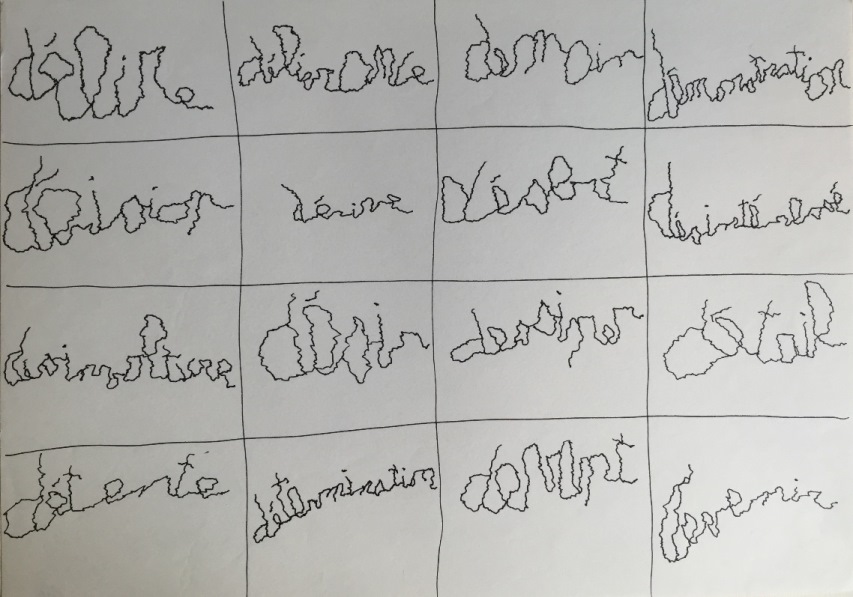 délire délivrance demain démonstration
dérision dérive désert
désinvolture désir dessiner détail
détente détermination devant devenir